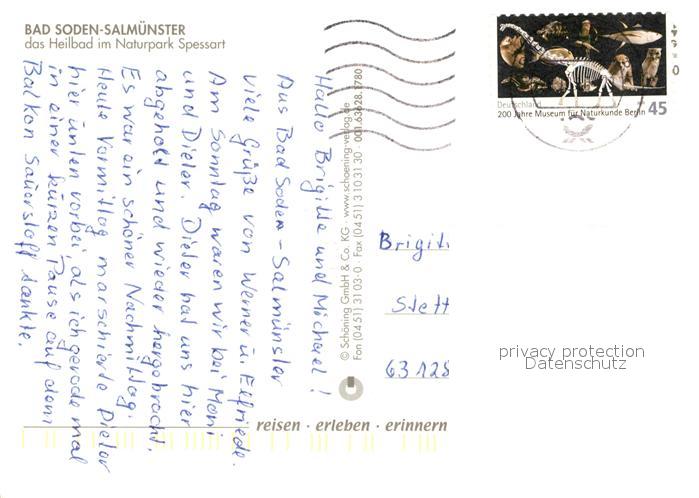 BAD SODEN-SALMÜNSTER
das Heilbad im Naturpark Spessart
Hallo Brigitte und Michael!
Aus Bad Soden-Salmünster
viele Grüße von Werner u. Elfriede.
Am Sonntag waren wir bei Moni
und Dieter. Dieter hat uns hier
abgeholt und wieder hergebracht.
Es war ein schöner Nachmittag.
Heute Vormittag marschierte Dieter
hier unten vorbei, als ich gerade mal
in einer kurzen Pause auf dem
Balkon Sauerstoff tankte.
© Schöning GmbH & Co. KG · www.schoening-verlag.de
Fon (04 51) 3 10 3-0 · Fax (04 51) 3 10 31 30 · 001.63628.1780
reisen · erleben · erinnern
Deutschland
200 Jahre Museum für Naturkunde Berlin
45
Brigit
Stett
63128
privacy protection
Datenschutz